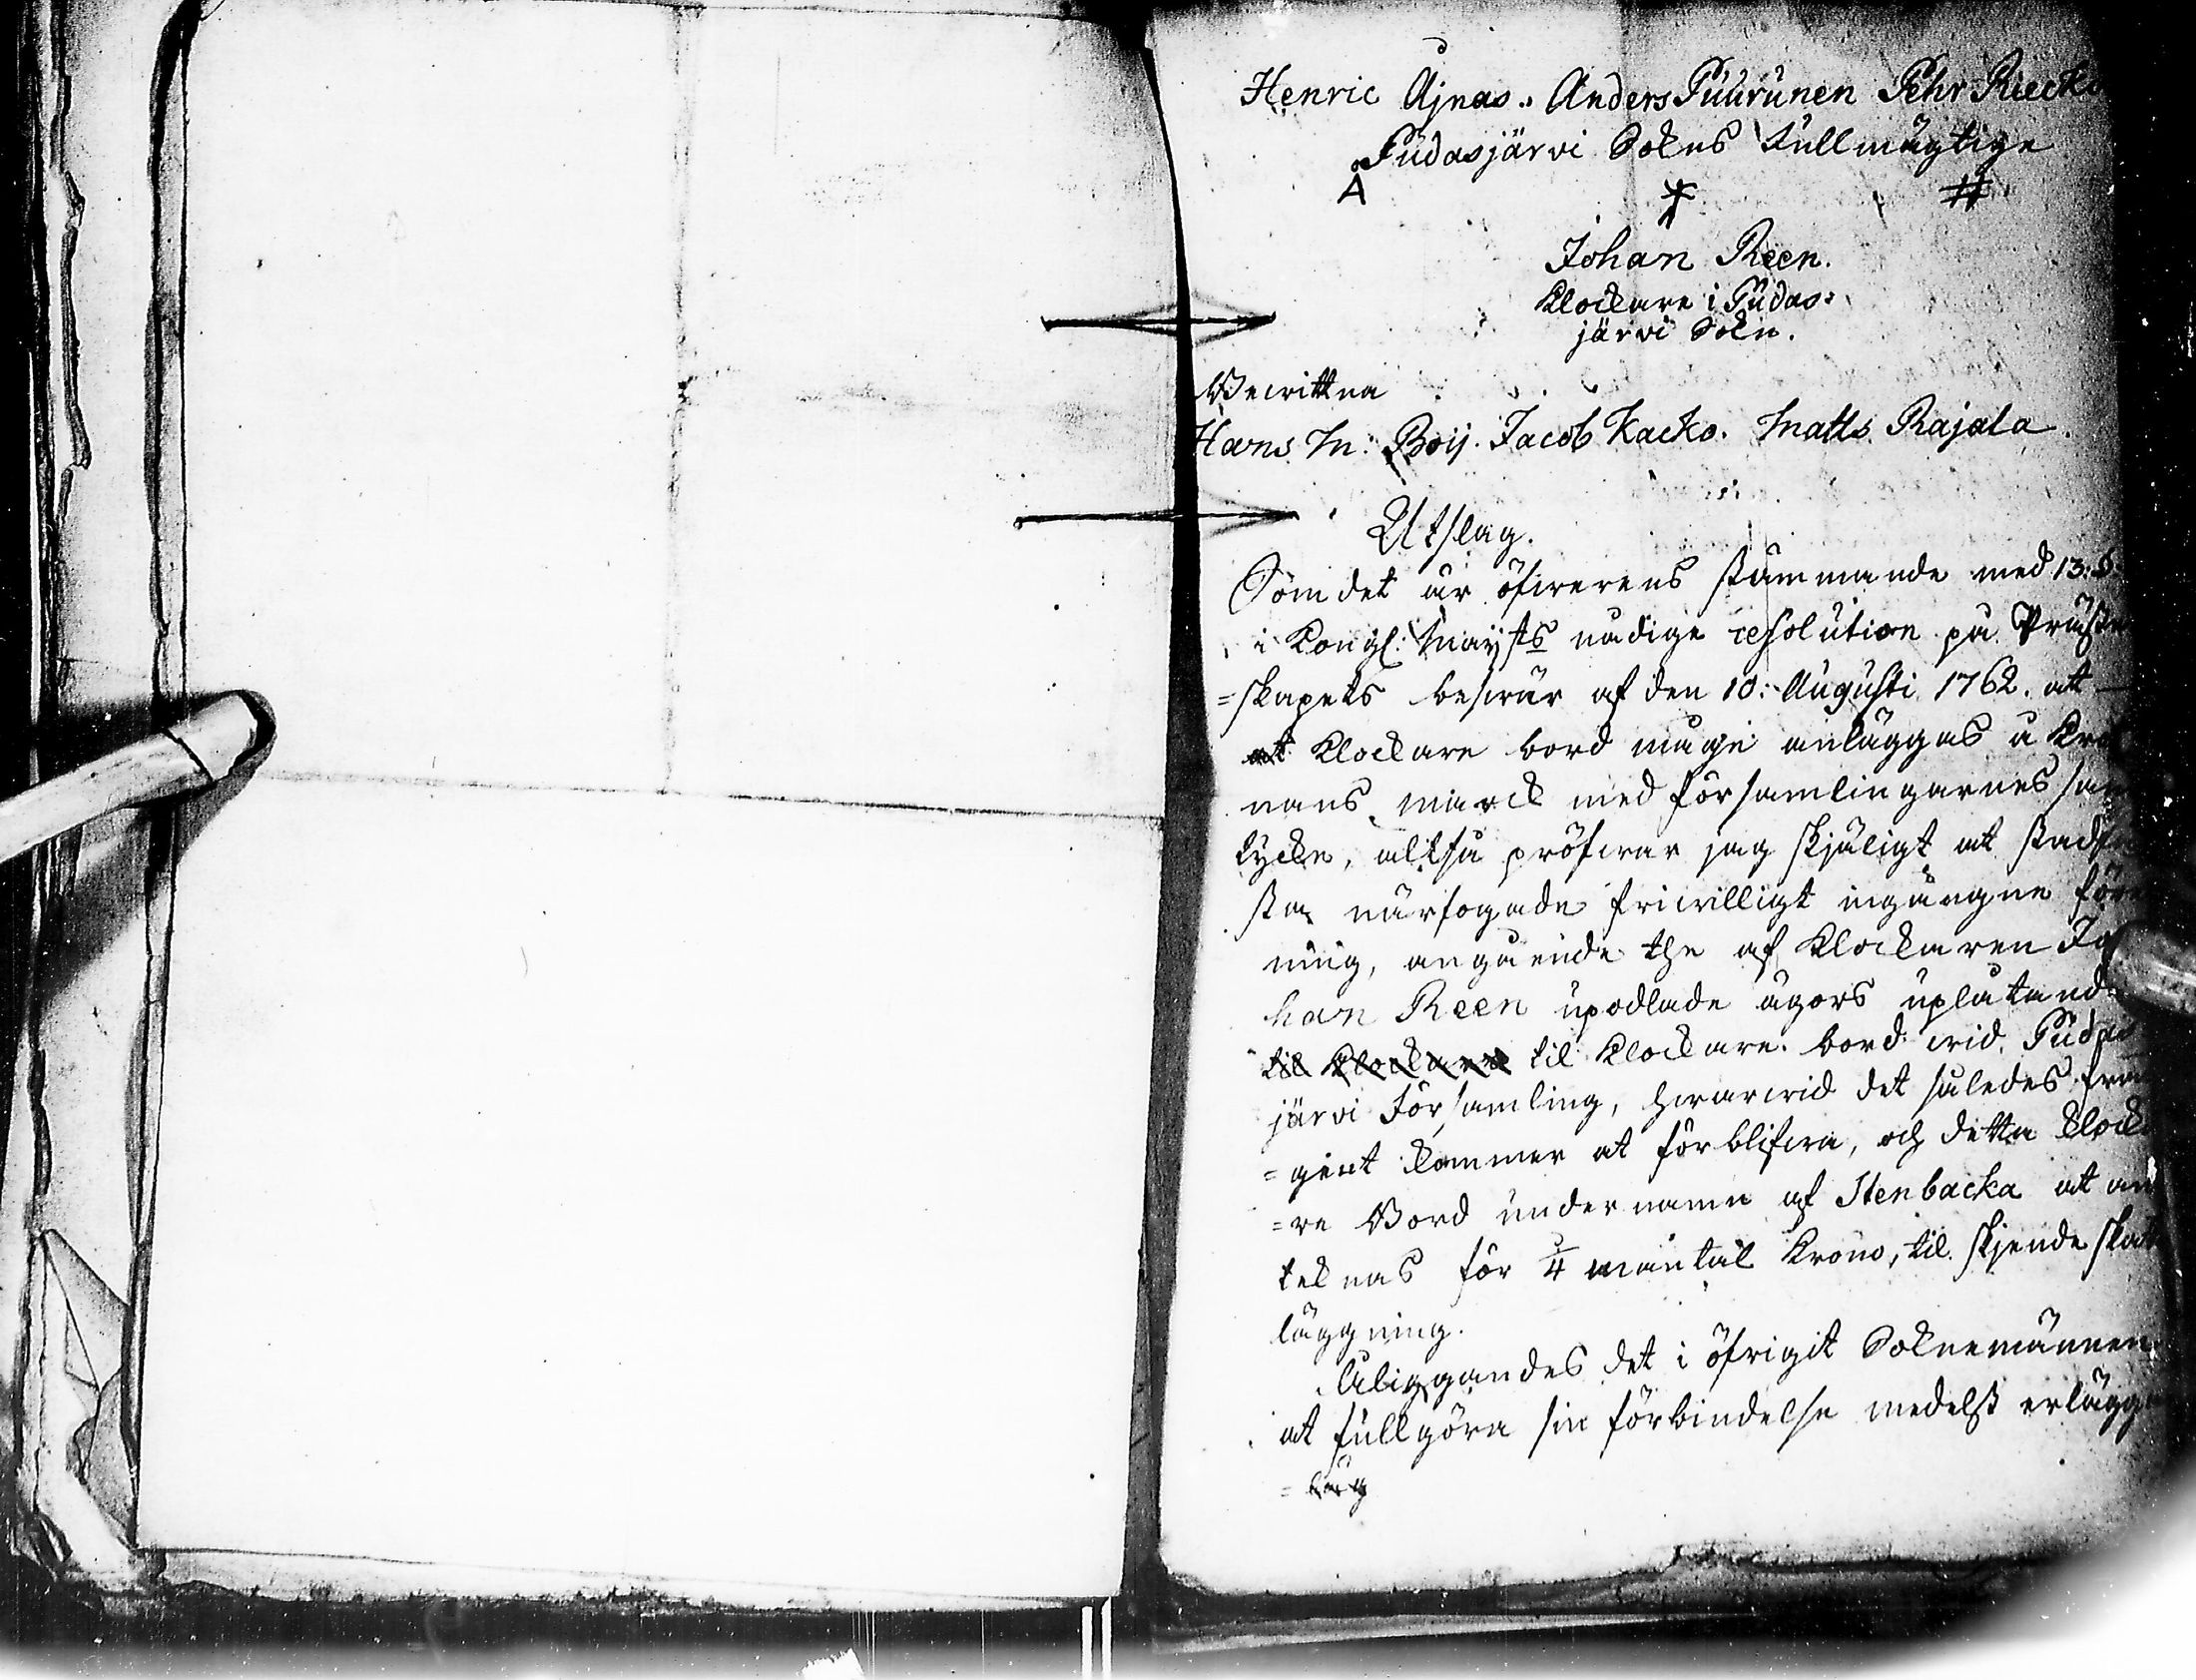 Henric Ajnas. Anders Puurunen Pehr Riecki
Pudasjärvi Sokns Fullmägtige
A # 
Johan Reen.
Klockare i Pudas-
järvi Sokn.
Bewittna
Hans M: Boij. Jacob Kacko. Matts Rajala.
Utslag.
Som det är öfwerens stämmande med 13: §
i Kongl: Maÿts nådige resolution på Präste
=skapets beswär af den 10: Augusti 1762. at
at klockare bord måge anläggas å Kro
nans marck med församlingarnes sam
tycke, altså pröfwar jag skjäligt at stadfä
sta närfogade friwilligt ingångne före
ning, angående the af Klockaren Jo
han Reen upodlade ägors uplåtande
til klockare til klockare bord wid Pudas
järvi Församling, hwarwid det således fram
=gent kommer at förblifwa, och detta klocka
=re Bord under namn af Stenbacka at an
teknas för 1/4 mantal Krono, til skjende skatt
läggning.
Åliggandes det i öfrigit Soknemännen
at fullgöra sin förbindelse medelst erlägga